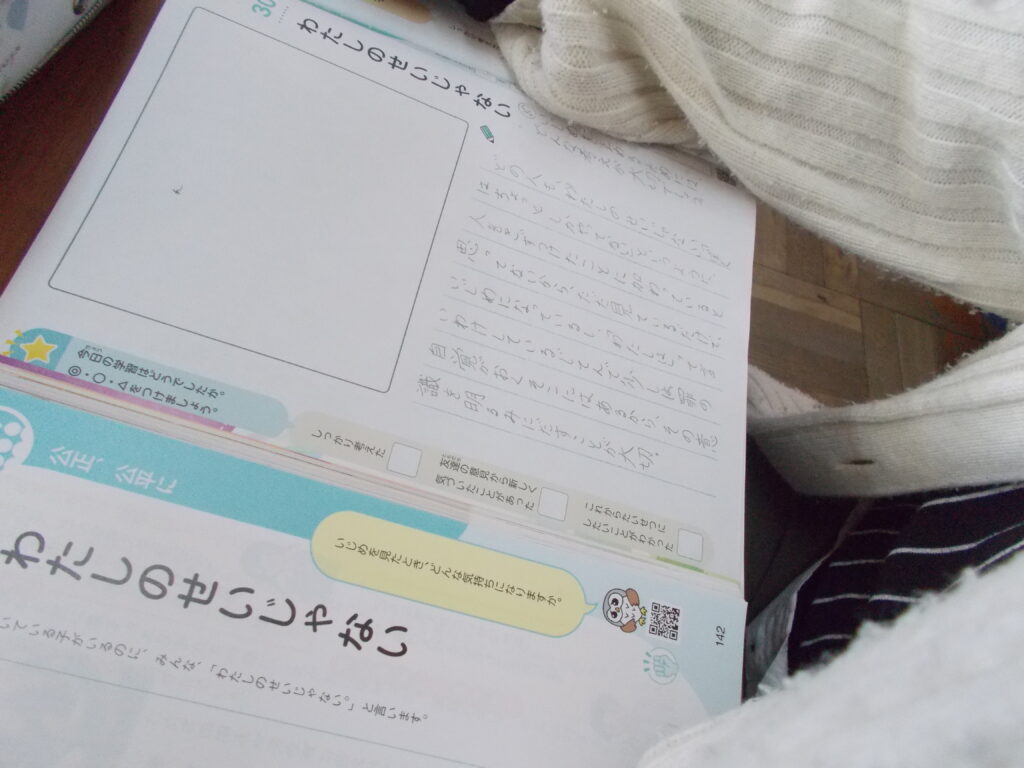 30
わたしのせいじゃない
どんな考えが大切
どの人も、わたしのせいじゃない。
はちょっとしか というように、
人をきずつけたことに加わっていると
思ってないから。ただ見ているだけで、
いじめになっているし「わたしは」って言
いわけしている。 少しは罪の
自覚がおくそこにはあるから、その意
識を明るみにだすことが大切。
今日の学習はどうでしたか。
◎・○・△をつけましょう。
しっかり考えた
友達の意見から新しく
気づいたことがあった
これからたいせつに
したいことがわかった
公正、公平に
いじめを見たとき、どんな気持ちになりますか。
わたしのせいじゃない
いている子がいるのに、みんな、「わたしのせいじゃない。」と言います。
142